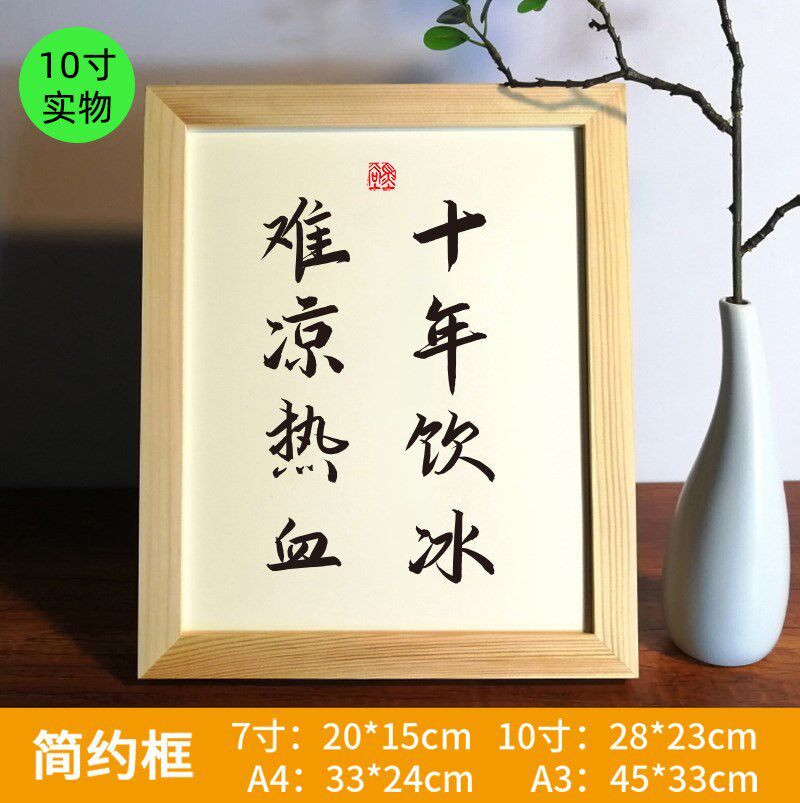 10寸
实物
十年饮冰
难凉热血
简约框
7寸：20*15cm 10寸：28*23cm
A4：33*24cm A3：45*33cm